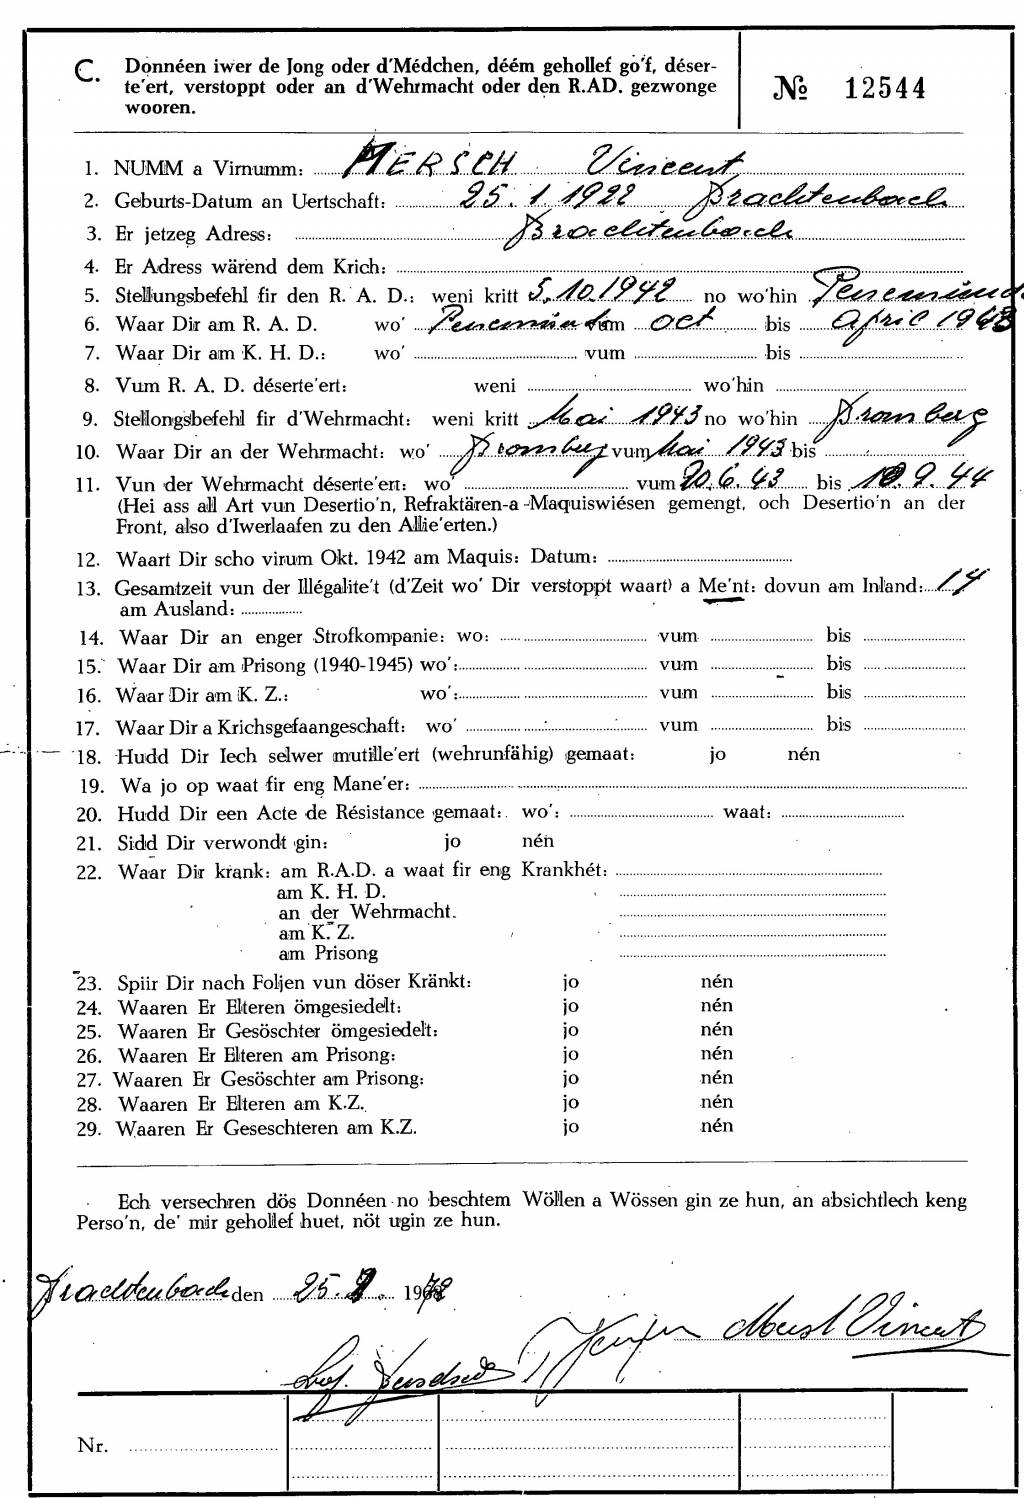 C. Donnéen iwer de Jong oder d'Médchen, déém gehollef go'f, déser-
te'ert, verstoppt oder an d'Wehrmacht oder den R.AD. gezwonge
wooren.
№ 12544
1. NUMM a Virnumm: MERSCH Vincent
2. Geburts-Datum an Uertschaft: 25.1.1922 Brachtenbach
3. Er jetzeg Adress: Brachtenbach
4. Er Adress wärend dem Krich:
5. Stellungsbefehl fir den R. A. D.: weni kritt 5.10.1942 no wo'hin
6. Waar Dir am R. A. D. wo' vum oct bis april 1943
7. Waar Dir am K. H. D.: wo' vum bis
8. Vum R. A. D. déserte'ert: weni wo'hin
9. Stellongsbefehl fir d'Wehrmacht: weni kritt Mai 1943 no wo'hin Bromberg
10. Waar Dir an der Wehrmacht: wo' Bromberg vum Mai 1943 bis
11. Vun der Wehrmacht déserte'ert: wo' vum 20.6.43 bis 10.9.44
(Hei ass all Art vun Desertio'n, Refraktären-a-Maquiswiésen gemengt, och Desertio'n an der
Front, also d'Iwerlaafen zu den Allie'erten.)
12. Waart Dir scho virum Okt. 1942 am Maquis: Datum:
13. Gesamtzeit vun der Illégalite't (d'Zeit wo' Dir verstoppt waart) a Me'nt: dovun am Inland: 14
am Ausland:
14. Waar Dir an enger Strofkompanie: wo: vum bis
15. Waar Dir am Prisong (1940-1945) wo': vum bis
16. Waar Dir am K. Z.: wo': vum bis
17. Waar Dir a Krichsgefaangeschaft: wo' vum bis
18. Hudd Dir Iech selwer mutille'ert (wehrunfähig) gemaat: jo nén
19. Wa jo op waat fir eng Mane'er:
20. Hudd Dir een Acte de Résistance gemaat: wo': waat:
21. Sidd Dir verwondt gin: jo nén
22. Waar Dir krank: am R.A.D. a waat fir eng Krankhét:
am K. H. D.
an der Wehrmacht.
am K. Z.
am Prisong
23. Spiir Dir nach Foljen vun döser Kränkt: jo nén
24. Waaren Er Elteren ömgesiedelt: jo nén
25. Waaren Er Gesöschter ömgesiedelt: jo nén
26. Waaren Er Elteren am Prisong: jo nén
27. Waaren Er Gesöschter am Prisong: jo nén
28. Waaren Er Elteren am K.Z. jo nén
29. Waaren Er Geseschteren am K.Z. jo nén
Ech versechren dös Donnéen no beschtem Wöllen a Wössen gin ze hun, an absichtlech keng
Perso'n, de' mir gehollef huet, nöt ugin ze hun.
Brachtenbach den 25. 19
Vincent
Nr.